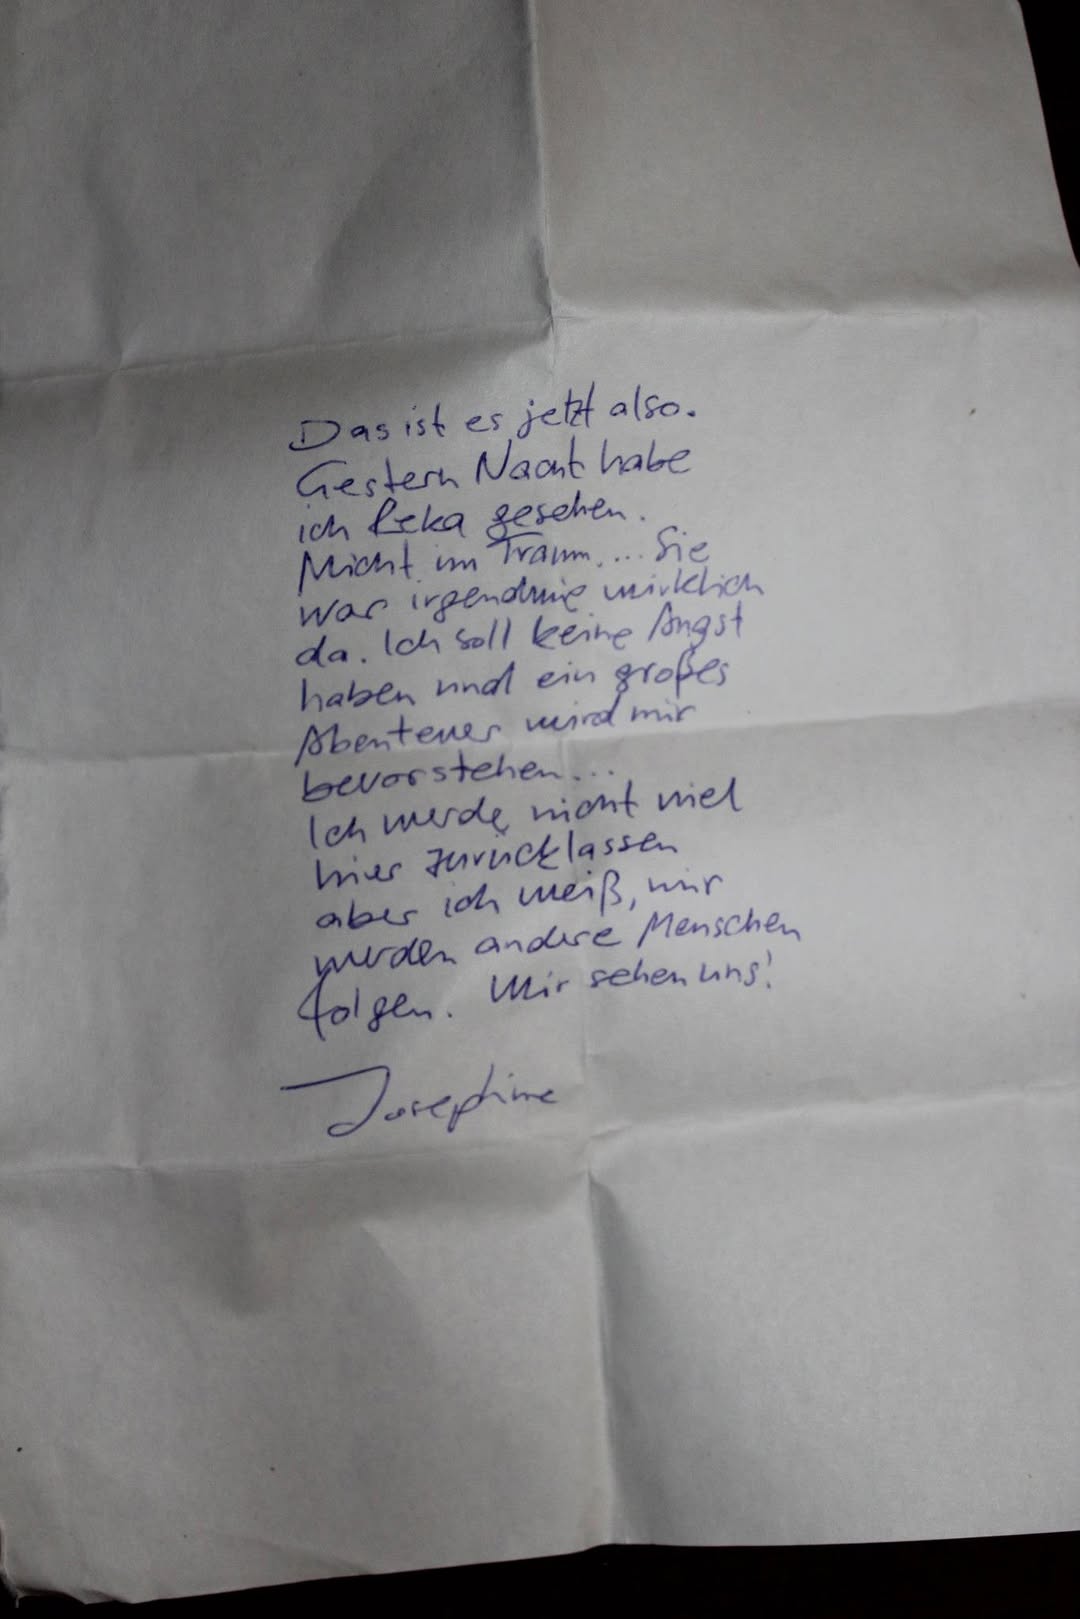 Das ist es jetzt also.
Gestern Nacht habe
ich Reka gesehen.
Nicht im Traum.... Sie
war irgendwie wirklich
da. Ich soll keine Angst
haben und ein großes
Abenteuer wird mir
bevorstehen...
Ich werde nicht viel
hier zurücklassen
aber ich weiß, mir
werden andere Menschen
folgen. Wir sehen uns!
Josephine